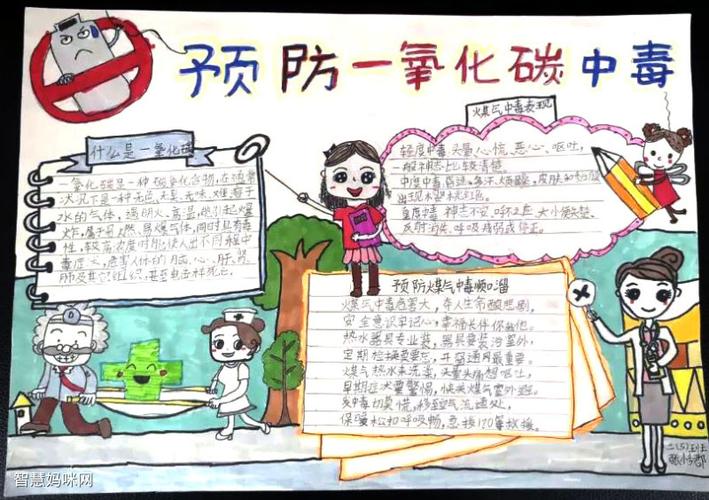 预防一氧化碳中毒
什么是一氧化碳
一氧化碳是一种碳氧化合物,在通常
状况下是一种无色、无臭、无味、难溶于
水的气体,遇明火、高温,燃引起爆
炸,属于易燃、易爆气体,同时具有毒
性,较高浓度时能使人出不同程中
毒症,危害人体的脑、心、肝、肾
肺及其它组织,甚至电击样死亡。
煤气中毒表现
轻度中毒 头晕、心慌、恶心、呕吐,
一般神志比较清楚。
中度中毒 皮肤
出现
重度中毒 神志不
反射消失、呼吸 或停正。
预防煤气中毒顺口溜
煤气中毒危害大,夺人生命酿悲剧,
安全意识牢记心,幸福长伴你我他。
热水器具专业装,器具要装浴室外,
定期检换要要忘,开窗通风最重要。
煤气热水来洗澡,头晕头痛想呕吐,
早期症状要警惕,快关煤气室外避。
发中毒切莫慌,移至空气流通处,
保暖松扣呼吸畅,急拨120等救援。
二(5)班
智慧妈咪网